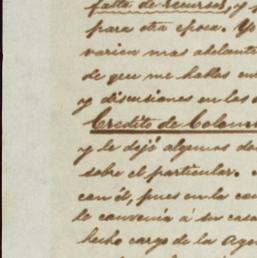 falta de recursos, y
para otra epoca. Yo
varien mas adelant
de que me hablas en
y discusiones en los
Credito de Colom
y le dejó algunos do
sobre el particular.
con él, pues en la co
le convenia á su casa
hecho cargo de la Agen